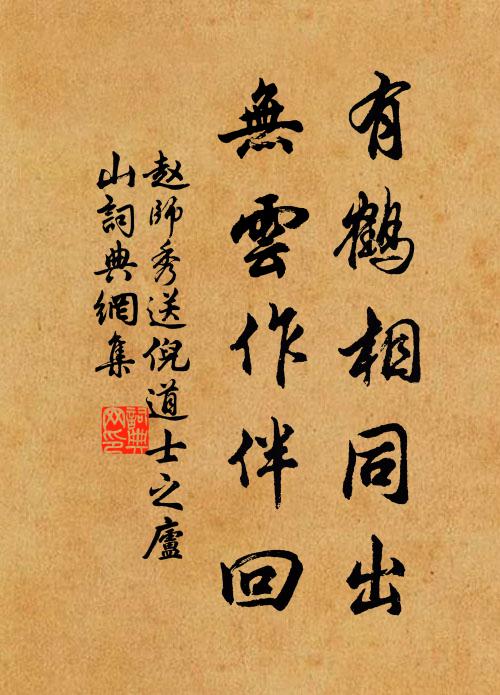 有鶴相同出
無雲作伴回
赵師秀送倪道士之廬
山詞典網集
詞典
网印